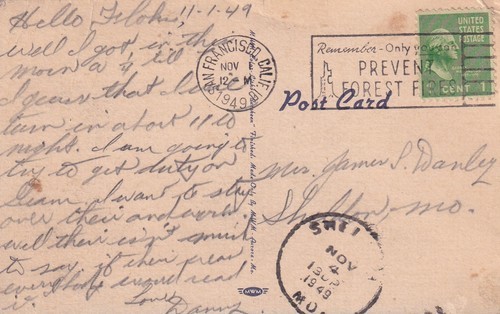 Hello Folks, 11-1-49
well I got in this
morn a 4 till
I guess that I
turn in about 11 to
night. I am going to
try to get duty on
I want to stay
over their and work
well their isn't much
to say, if their was
everything would read
it
Love
Danny
SAN FRANCISCO, CALIF.
NOV
12 M
1949
Remember - Only you can
PREVENT
FOREST FIRES
UNITED
STATES
POSTAGE
CENT 1
Post Card
Mrs. James S. Danley
Shelton, mo.
NOV
4
1949
MO
MWM